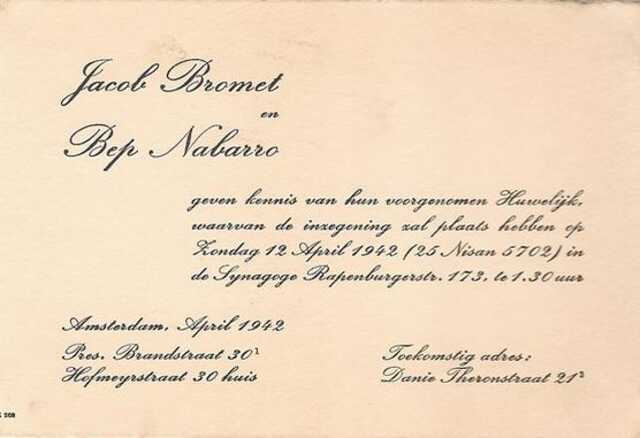 Jacob Bromet
en
Bep Nabarro
geven kennis van hun voorgenomen Huwelijk,
waarvan de inzegening zal plaats hebben op
Zondag 12 April 1942 (25 Nisan 5702) in
de Synagoge Rapenburgerstr. 173, te 1.30 uur
Amsterdam, April 1942
Pres. Brandstraat 30¹
Hofmeyrstraat 30 huis
Toekomstig adres:
Danie Theronstraat 21²